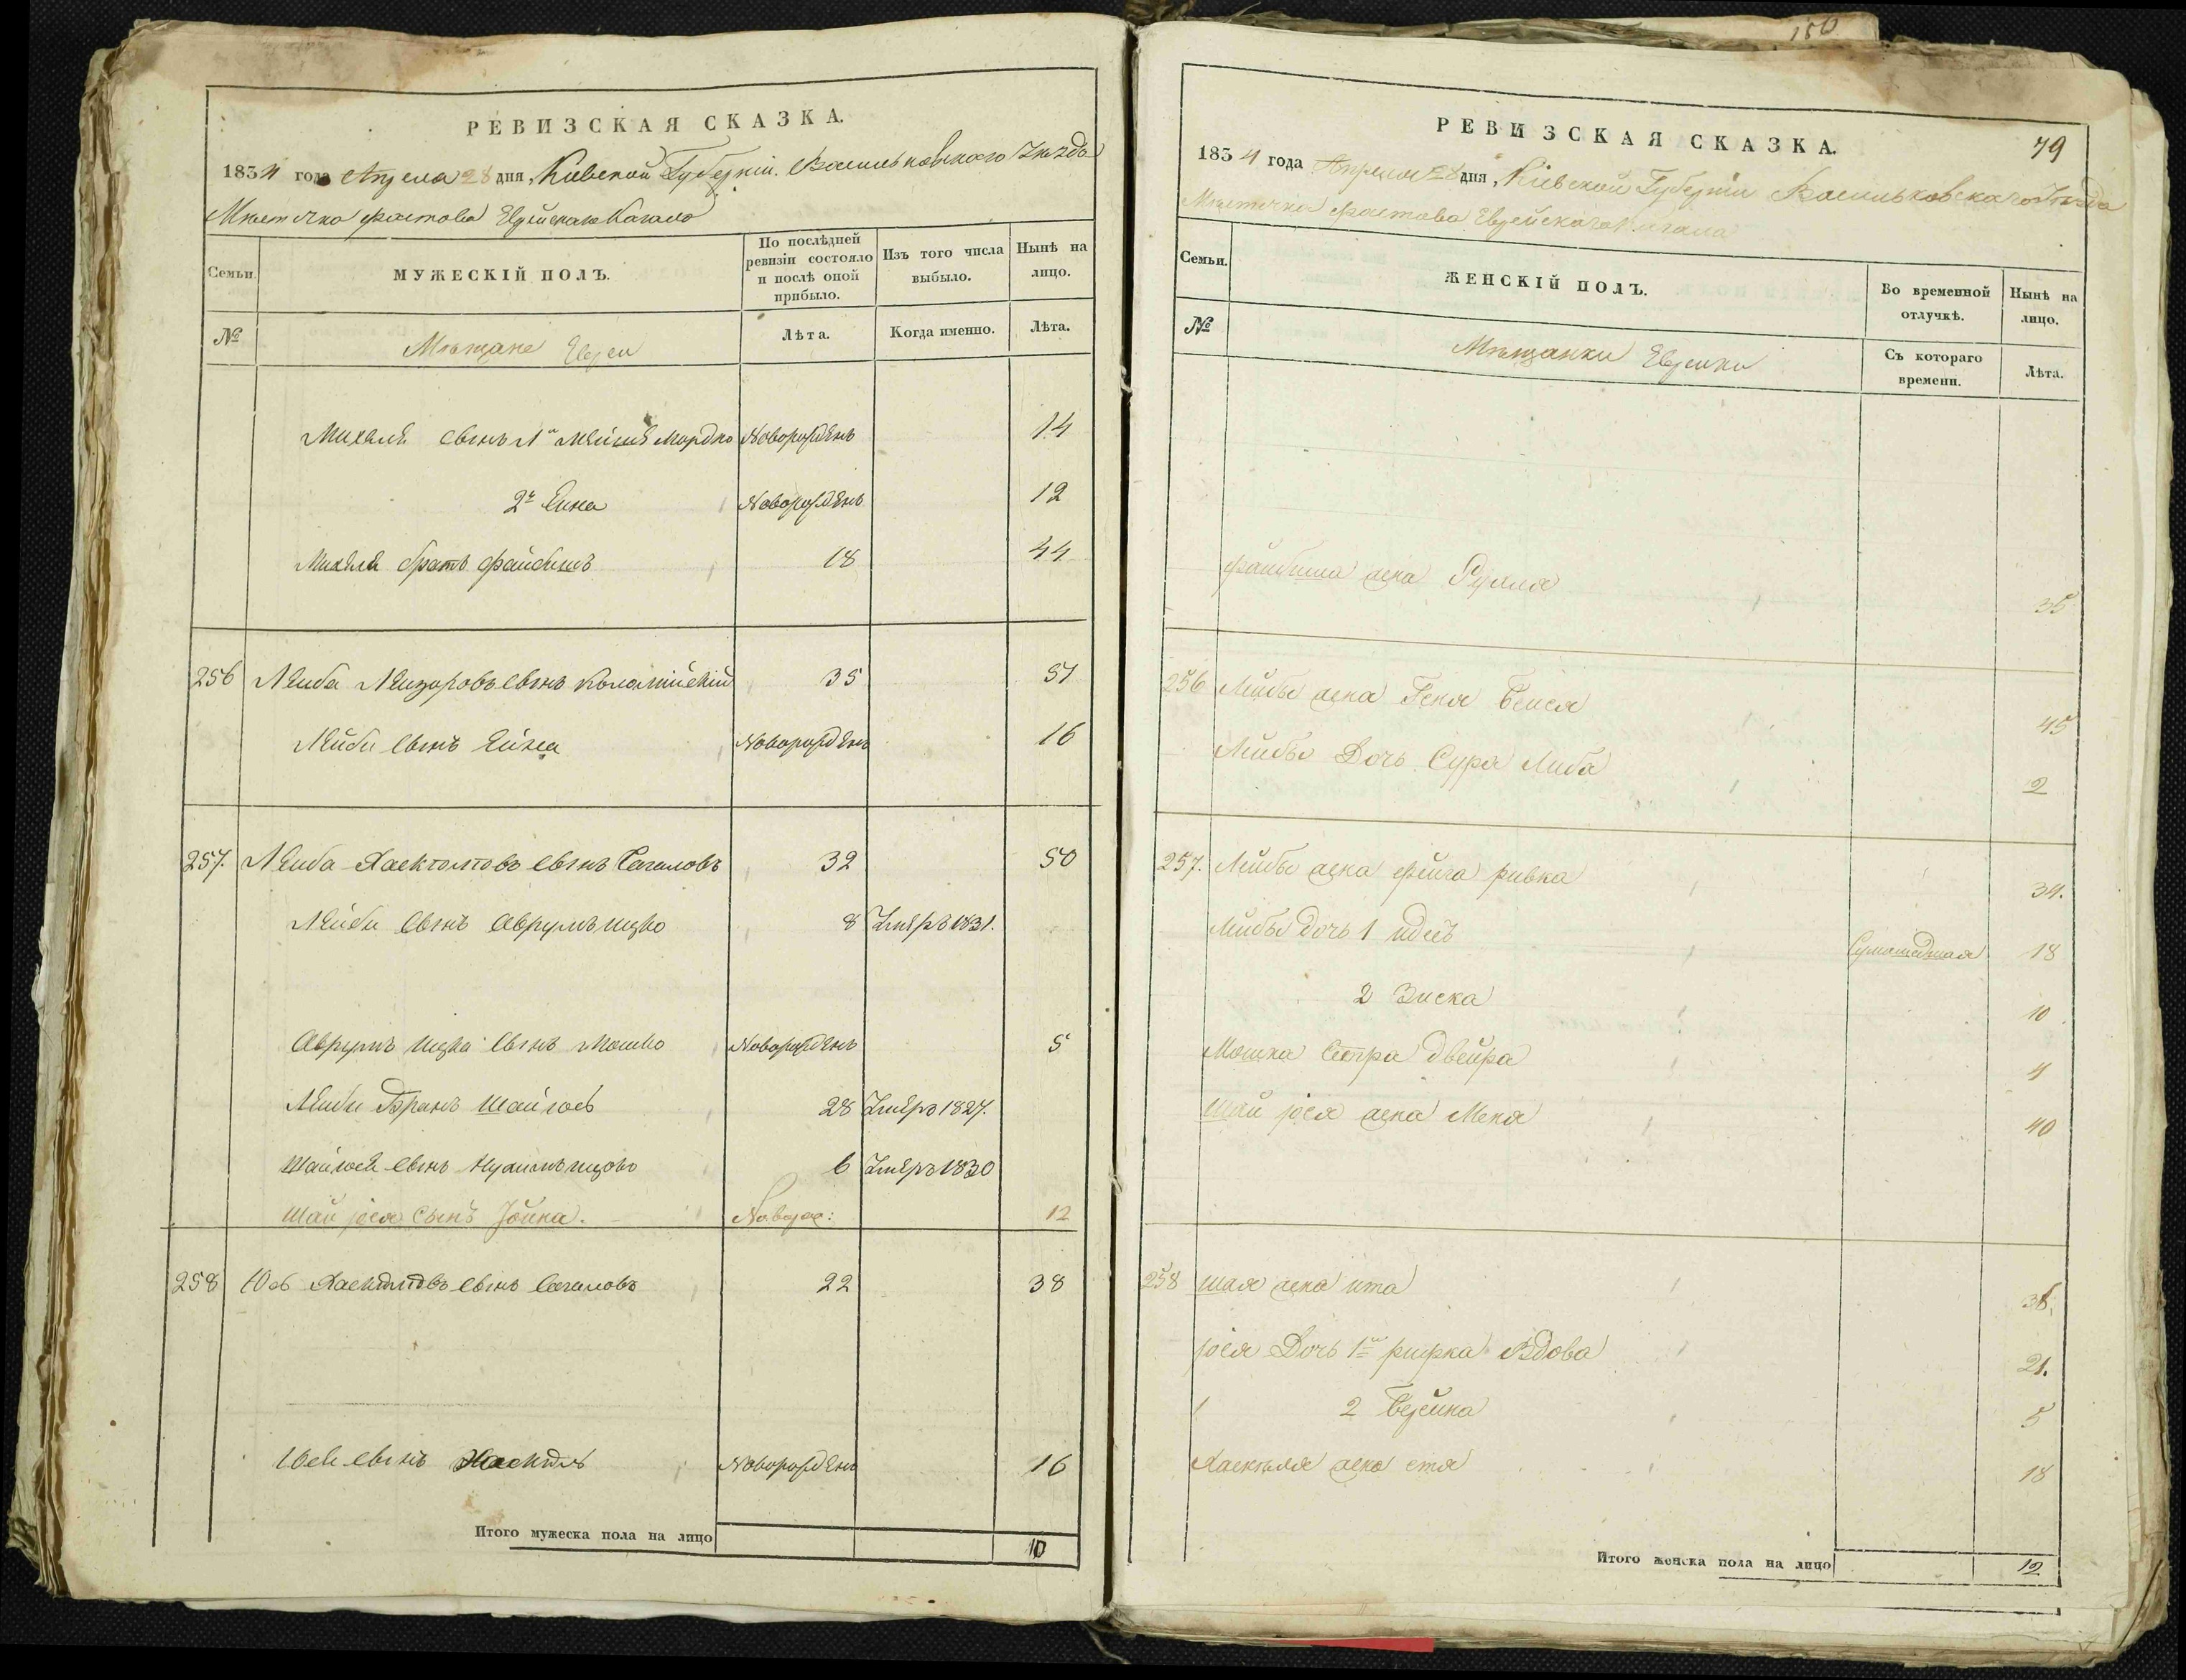 150
РЕВИЗСКАЯ СКАЗКА.
1834 года Апреля 28 дня, Киевской Губерніи Васильковскаго Уезда
Местечка Фастова Еврейскаго Кагала
Семьи.
МУЖЕСКІЙ ПОЛЪ.
По послѣдней ревизіи состояло и послѣ оной прибыло.
Изъ того числа выбыло.
Нынѣ на лицо.
№
Мѣщане Евреи
Лѣта.
Когда именно.
Лѣта.
Михеля сынъ 1й Мейше Мордко Новорожденъ 14
2й Ейна Новорожденъ 12
Михеля братъ Файбишъ 18 44
256 Лейба Лейзоровъ сынъ 35 51
Лейби сынъ Ейна Новорожденъ 16
257. Лейба Хаскелевъ сынъ Сагаловъ 32 50
Лейби сынъ Аврумъ Ицко 8 Умеръ 1831.
Аврумъ Ицка сынъ Мошко Новорожденъ 5
Лейби Братъ Шай Иосъ 28 Умеръ 1827.
Шай Иося сынъ Ицко 6 Умеръ 1830
Шай Іося Сынъ Іойна. Новорож: 12
258 Юсь сынъ Сагаловъ 22 38
Юся сынъ Хаскель Новорожденъ 16
Итого мужеска пола на лицо 10
РЕВИЗСКАЯ СКАЗКА.
79
1834 года Апреля 28 дня, Кіевской Губерніи Васильковскаго Уѣзда
Мѣстечка Фастова Еврейскаго Кагала
Семьи.
ЖЕНСКІЙ ПОЛЪ.
Во временной отлучкѣ.
Нынѣ на лицо.
№
Мѣщанки Еврейки
Съ котораго времени.
Лѣта.
Файбиша жена Рухля 35
256 Лейбы жена Геня Бейся 45
Лейбы Дочь Сура Либа 2
257. Лейбы жена Фейга Ривка 39.
Лейбы дочь 1 Идесъ Сумашедшая 18
2 Виска 10
Мошка Сестра Двейра 4
Шай Іося жена Меня 40
258 Шая жена Ита 38.
Іося Дочь 1я Рифка Вдова 21.
2 Брейна 5
Хаскеля жена Етя 18
Итого женска пола на лицо 12